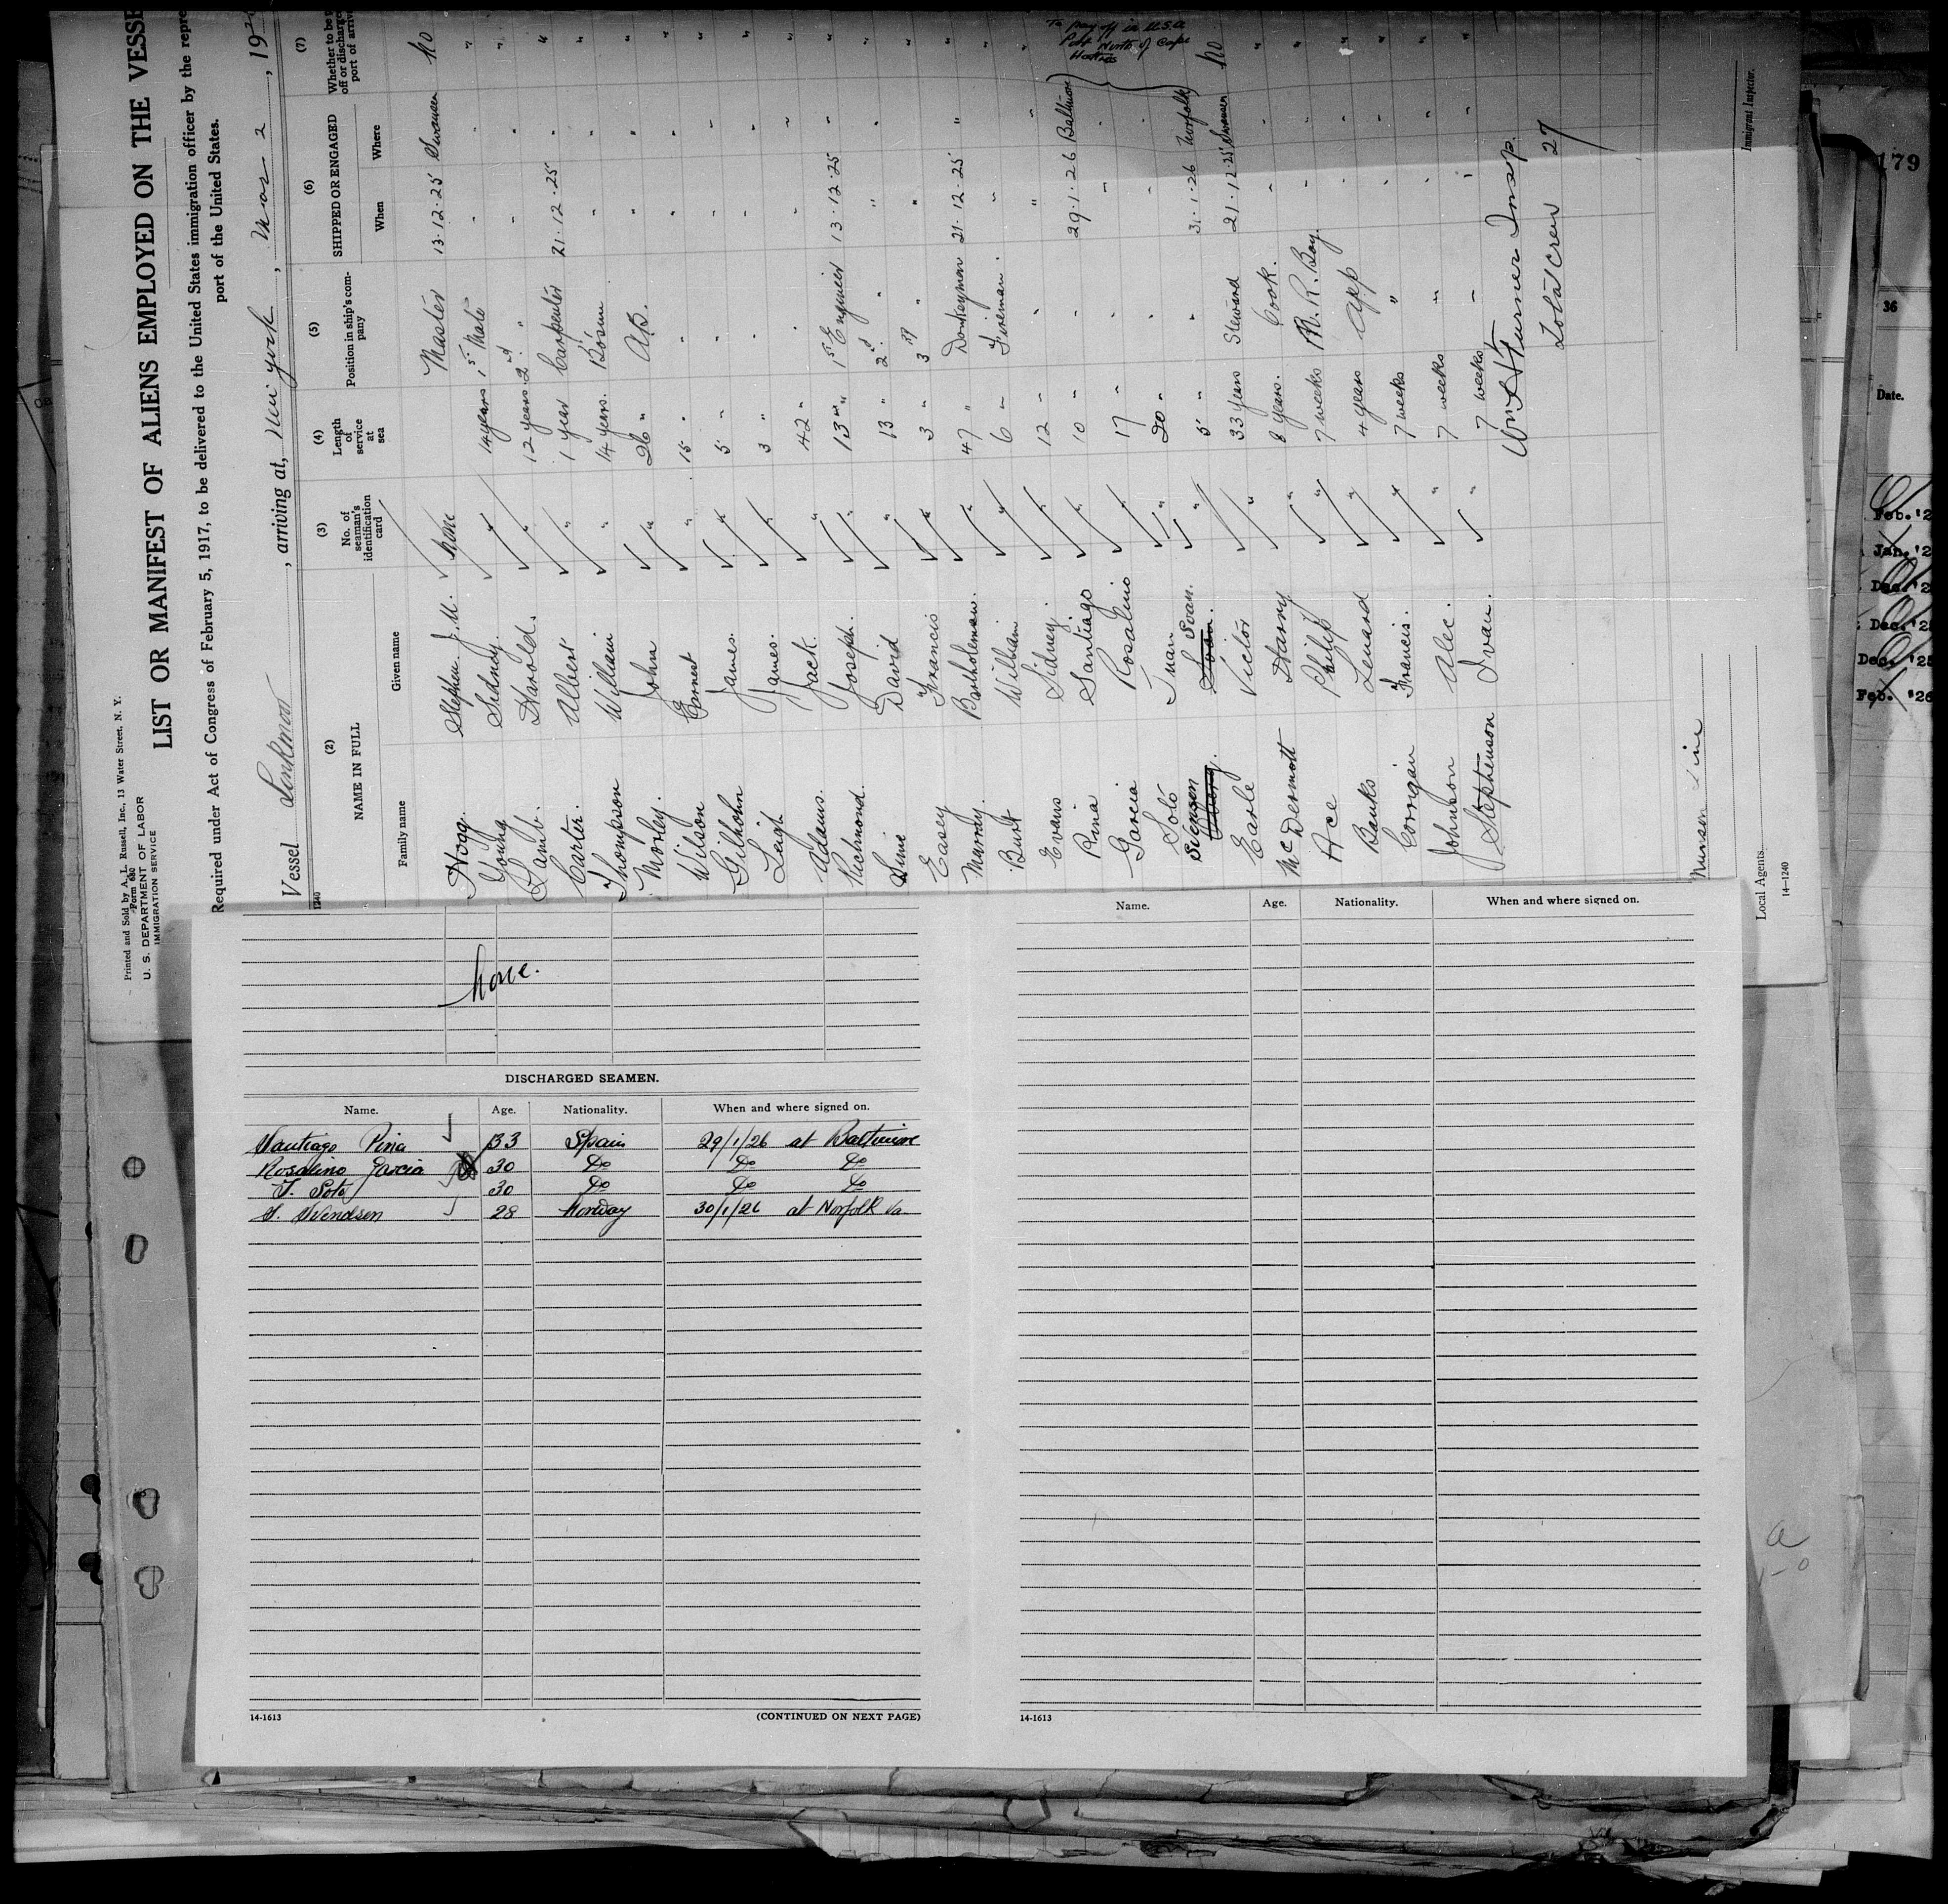 Printed and Sold by A. L. Russell, Inc., 13 Water Street, N. Y.
Form 680
U. S. DEPARTMENT OF LABOR
IMMIGRATION SERVICE
LIST OR MANIFEST OF ALIENS EMPLOYED ON THE VESSE
Required under Act of Congress of February 5, 1917, to be delivered to the United States immigration officer by the repre
port of the United States.
Vessel , arriving at, New york , Mar 2 , 192
1240
(2) (3) (4) (5) (6) (7)
NAME IN FULL
Family name Given name
No. of seaman's identification card
Length of service at sea
Position in ship's company
SHIPPED OR ENGAGED
When Where
Whether to be
off or discharge
port of arriv
Hogg. Stephen J.M. None Master 13.12.25 Swansea No
Young Sidney. " 14 years 1st Mate " " "
Lamb. Harold. " 12 years 2nd " " " "
Carter. Albert " 1 year Carpenter 21.12.25 " "
Thompson William " 14 years. Bosun " " "
Morley. John " 26 " A.B. " " "
Wilson Earnest " 15 " " " " "
Gilhohn James. " 5 " " " " "
Leigh James. " 3 " " " " "
Adams. Jack. " 42 " " " " "
Richmond. Joseph. " 13 " 1st Engineer 13.12.25 " "
David " 13 " 2nd " " " "
Easey Francis " 3 " 3rd " " " "
Murray. Bartholemew. " 47 " Donkeyman 21.12.25 " "
Burt William " 6 " Fireman. " " "
Evans Sidney. " 12 " " " " "
Pina Santiago " 10 " " 29.1.26 Baltimore
Garcia Rosalino " 17 " " " "
Soto Juan " 20 " " " "
Svensen Svan. " 5 " " 31.1.26 Norfolk
To pay off in U.S.A.
Port North of Cape
Hatteras
Earle Victor " 33 years Steward 21.12.25 Swansea No
McDermott Harry " 8 years. Cook. " " "
Ace Philip " 7 weeks M.R. Boy. " " "
Banks Lenard " 4 years App " " "
Corrigan Francis. " 7 weeks " " " "
Johnson Alec. " 7 weeks " " " "
Stephenson Ivan. " 7 weeks " " " "
Wm H Turner Insp.
Total Crew 27
Munson Line
Local Agents
14—1240
Immigrant Inspector.
179
36
Date.
Feb. '2
Jan. '2
Dec. '2
Dec. '2
Dec. '25
Feb. '26
None.
DISCHARGED SEAMEN.
Name. Age. Nationality. When and where signed on.
Santiago Pina 33 Spain 29/1/26 at Baltimore
Rosalino Garcia 30 Do Do Do
J. Soto 30 Do Do Do
S. Svendsen 28 Norway 30/1/26 at Norfolk Va.
14-1613 (CONTINUED ON NEXT PAGE)
Name. Age. Nationality. When and where signed on.
14-1613